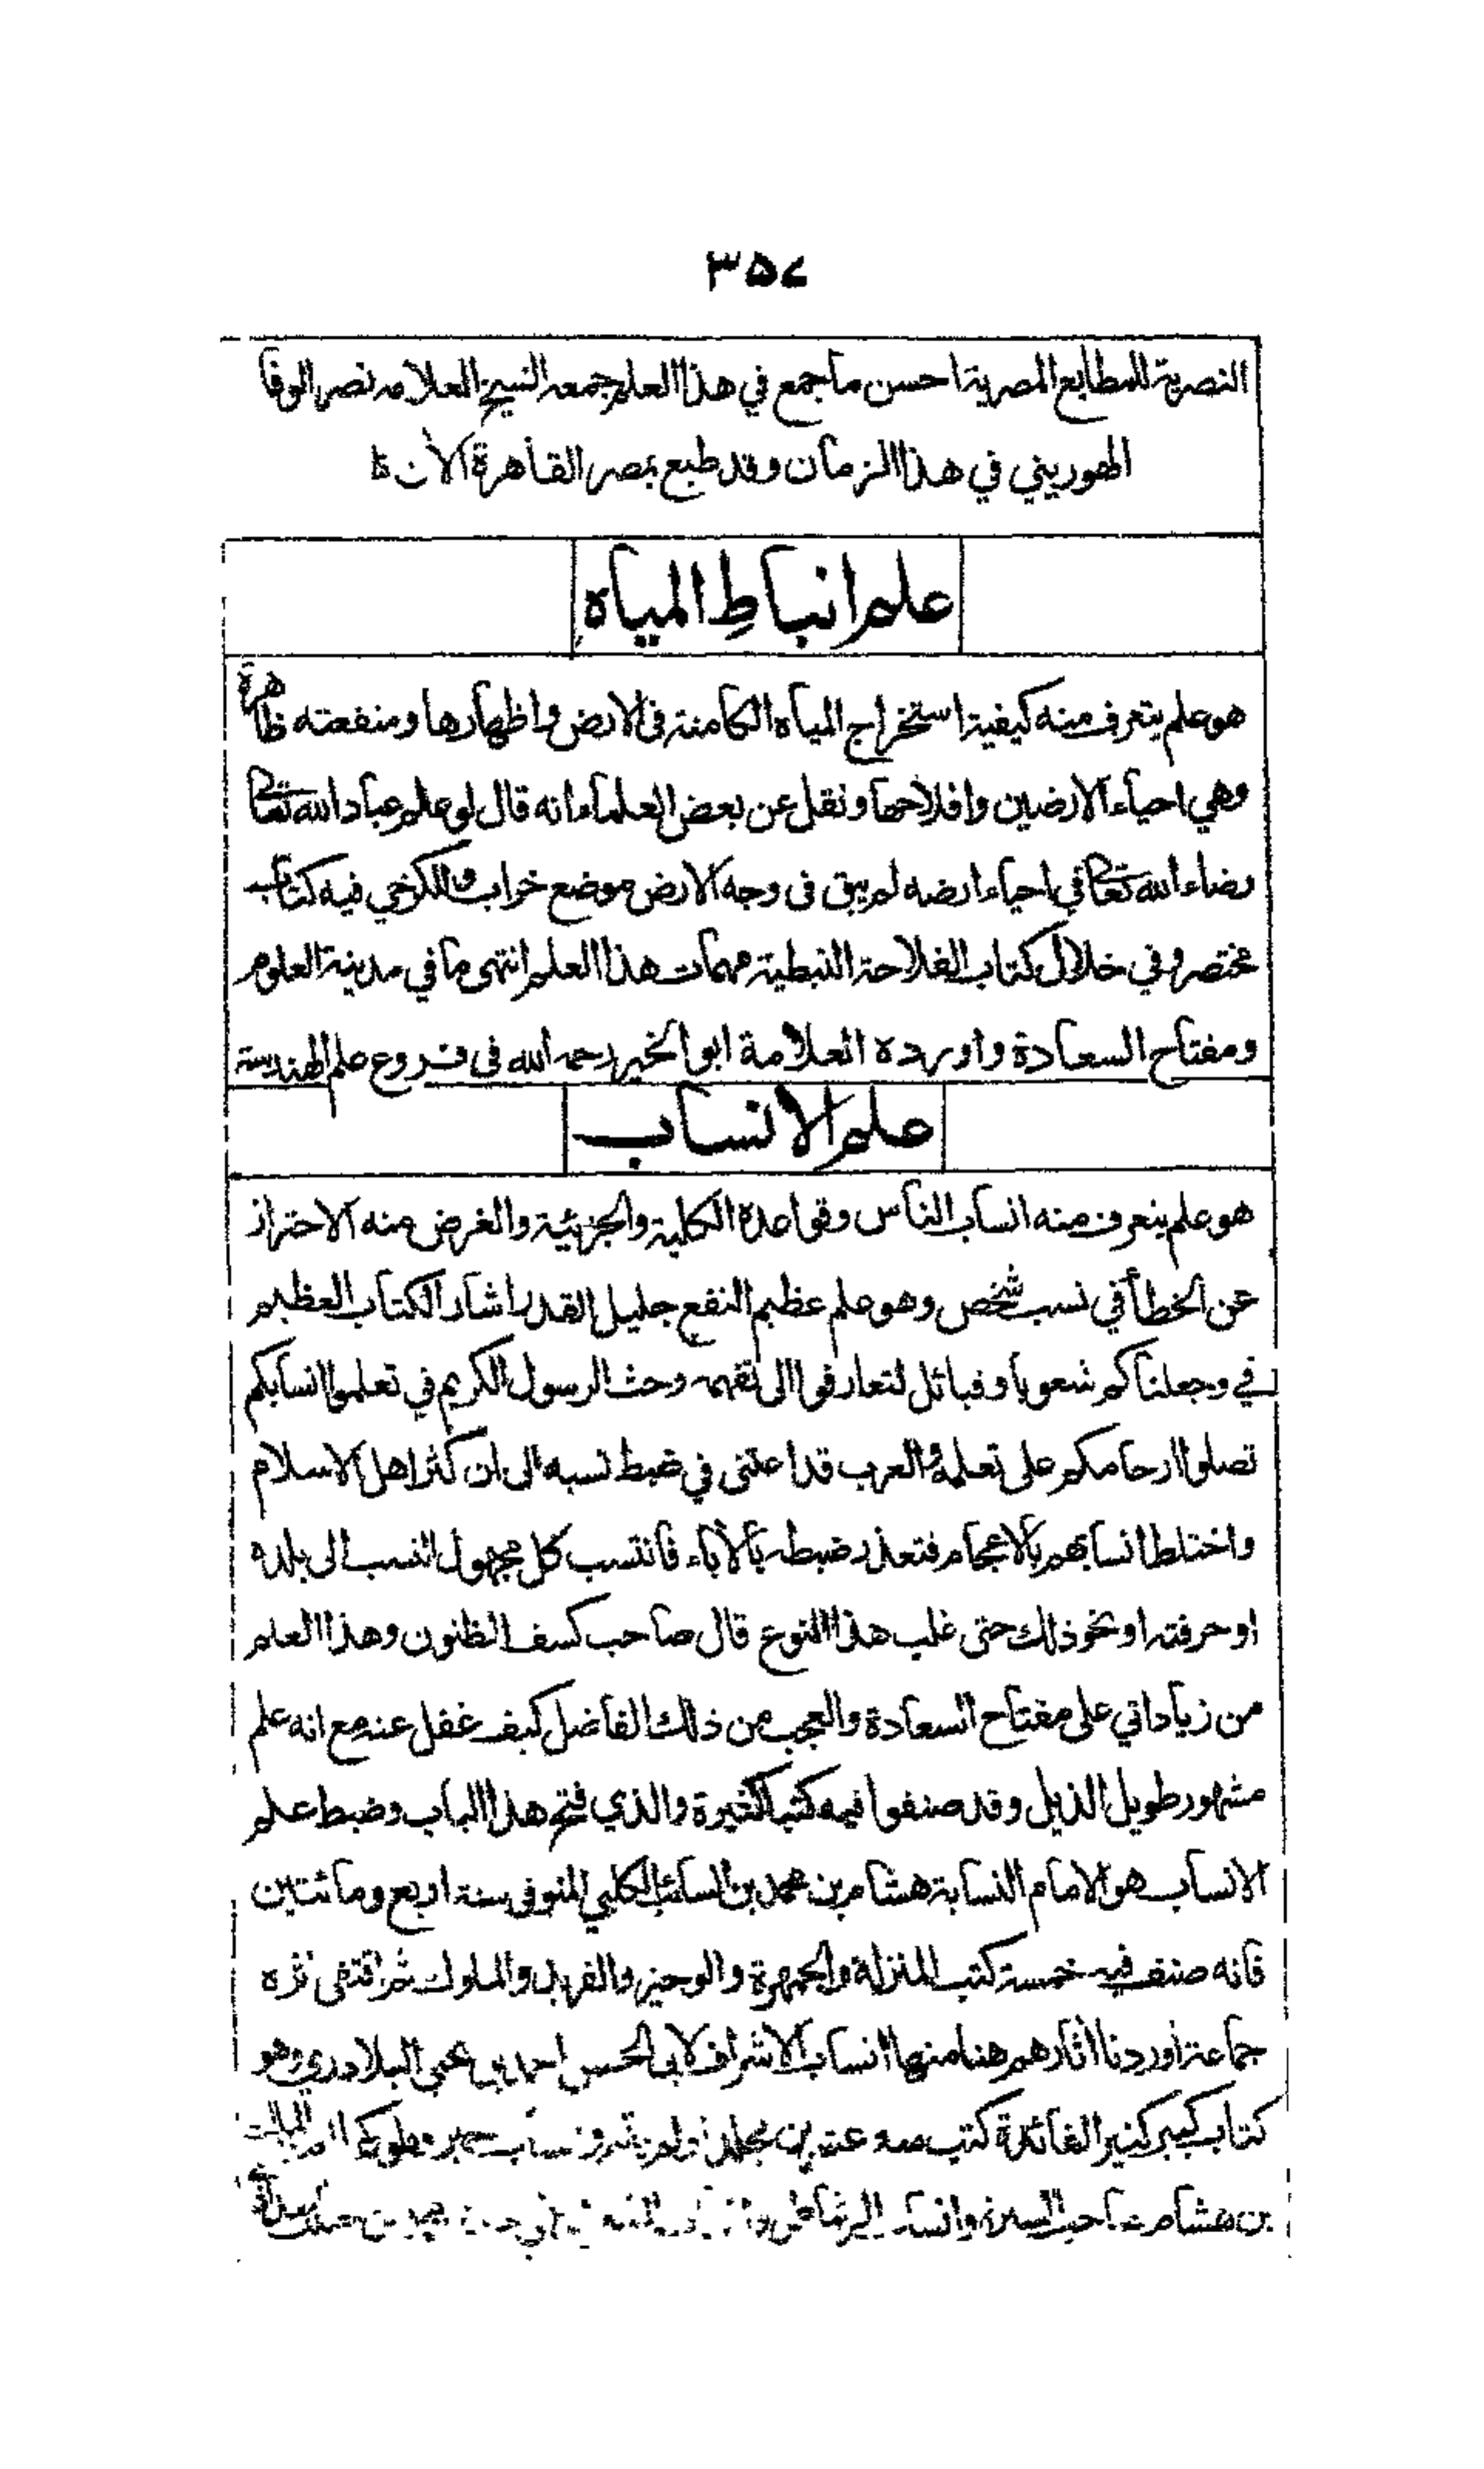 ٣٥٧
النصرية للمطابع المصرية احسن ما جمع في هذا العلم جمعه الشيخ العلامه نصر الوفا
الهوريني في هذا الزمان وقد طبع بمصر القاهرة الأن
علم انباط المياه
هو علم يتعرف منه كيفية استخراج المياه الكامنة فى الارض واظهارها ومنفعته ظاهرة
وهي احياء الارضين وافلاحها ونقل عن بعض العلماء انه قال لو علم عباد الله تعالى
رضاء الله تعالى في احياء ارضه لم يبق فى وجه الارض موضع خراب وللكرخي فيه كتاب
مختصر وفي خلال كتاب الفلاحة النبطية مهمات هذا العلم انتهى ما في مدينة العلوم
ومفتاح السعادة واورده العلامة ابو الخير رحمه الله فى فروع علم الهندسة
علم الانساب
هو علم يتعرف منه انساب الناس وقواعده الكلية والجزئية والغرض منه الاحتراز
عن الخطأ في نسب شخص وهو علم عظيم النفع جليل القدر اشار الكتاب العظيم
في وجعلناكم شعوبا وقبائل لتعارفوا الى تفهمه وحث الرسول الكريم في تعلموا انسابكم
تصلوا ارحامكم على تعلمه والعرب قد اعتنى في ضبط نسبه الى ان كثر اهل الاسلام
واختلط انسابهم بالاعجام فتعذر ضبطه بالأباء فانتسب كل مجهول النسب الى بلده
او حرفته او نحو ذلك حتى غلب هذا النوع قال صاحب كشف الظنون وهذا العلم
من زياداتي على مفتاح السعادة والعجب من ذلك الفاضل كيف غفل عنه مع انه علم
مشهور طويل الذيل وقد صنفوا فيه كتبا كثيرة والذي فتح هذا الباب وضبط علم
الانساب هو الامام النسابة هشام بن محمد بن السائب الكلبي المتوفى سنة اربع ومائتين
فانه صنف فيه خمسة كتب المنزلة والجمهرة والوجيز والفريد والملوك ثم اقتفى اثره
جماعة اوردنا اثارهم هنا منها انساب الاشراف لابى الحسن احمد بن يحيى البلاذري وهو
كتاب كبير كثير الفائدة كتب منه عشرين مجلدا ولم يتم وانساب حمير وملوكها
بن هشام صاحب السيرة وانساب الرشاطي